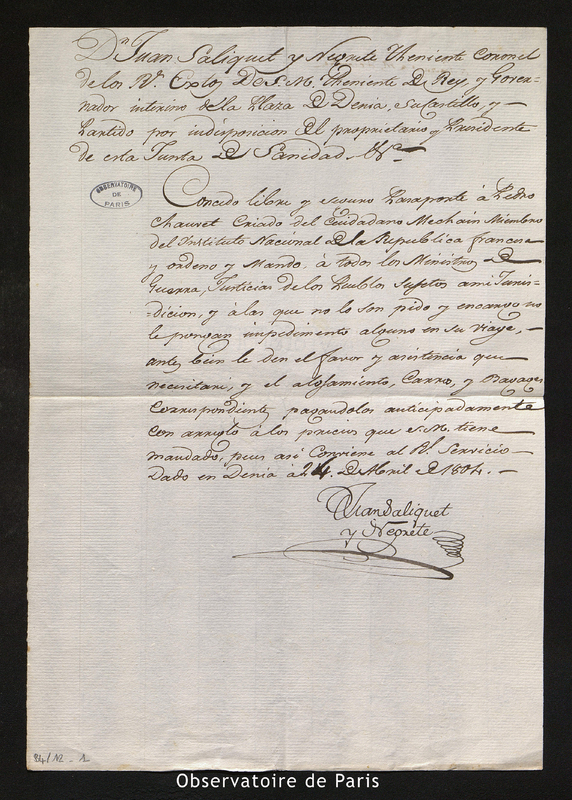 Dn. Juan Saliquet y Negrete Theniente Coronel
de los Rs. Extos. De S. M. Theniente D Rey y Gover-
nador interino de la Plaza D Denia, su Castillo, y
Partido por indisposicion del proprietario y Presidente
de esta Junta D Sanidad &a.
OBSERVATOIRE
DE
PARIS
Concedo libre y seguro Pasaporte á Pedro
Chauvet Criado del Ciudadano Mechain Miembro
del Instituto Nacional de la Republica francesa
y ordeno y Mando, á todos los Ministros D
Guerra, Justicias de los Pueblos sujetos a mi Juris-
-dicion, y á las que no lo son pido y encargo no
le pongan impedimento alguno en su viage,
antes bien le den el favor y asistencia que
necesitare, y el alojamiento, Carros, y Bagages
correspondientes pagandolos anticipadamente
con arreglo á los precios que S. M. tiene
mandado, pues asi Conviene al Rl. Servicio
Dado en Denia á 24 D Abril D 1804.
Juan Saliquet
y Negrete
84/12-1
Observatoire de Paris